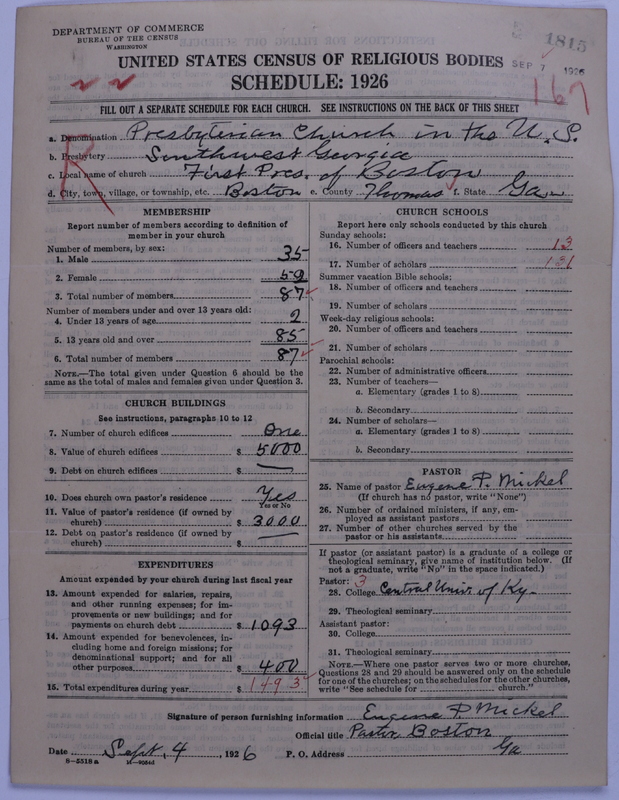 DEPARTMENT OF COMMERCE
BUREAU OF THE CENSUS
WASHINGTON
1815
UNITED STATES CENSUS OF RELIGIOUS BODIES
SEP 7 1926
SCHEDULE: 1926
167
FILL OUT A SEPARATE SCHEDULE FOR EACH CHURCH. SEE INSTRUCTIONS ON THE BACK OF THIS SHEET
a. Denomination Presbyterian Church in the U.S.
b. Presbytery Southwest Georgia
c. Local name of church First Pres. of Boston
d. City, town, village, or township, etc. Boston e. County Thomas f. State Ga
MEMBERSHIP
Report number of members according to definition of
member in your church
Number of members, by sex:
1. Male 35
2. Female 52
3. Total number of members 87
Number of members under and over 13 years old:
4. Under 13 years of age 2
5. 13 years old and over 85
6. Total number of members 87
NOTE.—The total given under Question 6 should be
same as the total of males and females given under Question 3.
CHURCH BUILDINGS
See instructions, paragraphs 10 to 12
7. Number of church edifices One
8. Value of church edifices $ 5000
9. Debt on church edifices $ —
10. Does church own pastor's residence Yes
Yes or No
11. Value of pastor's residence (if owned by
church) $ 3000
12. Debt on pastor's residence (if owned by
church) $ —
EXPENDITURES
Amount expended by your church during last fiscal year
13. Amount expended for salaries, repairs,
and other running expenses; for im-
provements or new buildings; and for
payments on church debt $ 1093
14. Amount expended for benevolences, in-
cluding home and foreign missions; for
denominational support; and for all
other purposes $ 400
15. Total expenditures during year $ 1493
CHURCH SCHOOLS
Report here only schools conducted by this church
Sunday schools:
16. Number of officers and teachers 13
17. Number of scholars 131
Summer vacation Bible schools:
18. Number of officers and teachers
19. Number of scholars
Week-day religious schools:
20. Number of officers and teachers
21. Number of scholars
Parochial schools:
22. Number of administrative officers
23. Number of teachers—
a. Elementary (grades 1 to 8)
b. Secondary
24. Number of scholars—
a. Elementary (grades 1 to 8)
b. Secondary
PASTOR
25. Name of pastor Eugene P. Mickel
(If church has no pastor, write "None")
26. Number of ordained ministers, if any, em-
ployed as assistant pastors
27. Number of other churches served by the
pastor or his assistants
If pastor (or assistant pastor) is a graduate of a college or
theological seminary, give name of institution below. (If
not a graduate, write "No" in the space indicated.)
Pastor: 3
28. College Central Univ. of Ky.
29. Theological seminary
Assistant pastor:
30. College
31. Theological seminary
NOTE.—Where one pastor serves two or more churches,
Questions 28 and 29 should be answered only on the schedule
for one of the churches; on the schedules for the other churches,
write "See schedule for church."
Signature of person furnishing information Eugene P. Mickel
Official title Pastor Boston
Date Sept. 4, 1926 P. O. Address Ga
8—5518a